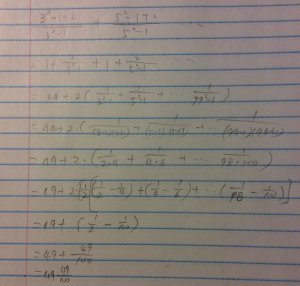 (3²-1+2)/(3²-1) + (5²-1+2)/(5²-1) ...
= 1 + 2/(3²-1) + 1 + 2/(5²-1) ...
= 49 + 2 ( 1/(3²-1) + 1/(5²-1) + ... 1/(99²-1) )
= 49 + 2 · ( 1/((3-1)(3+1)) + 1/((5-1)(5+1)) + ... 1/((99-1)(99+1))
= 49 + 2 · ( 1/(2·4) + 1/(4·6) + ... 1/(98·100) )
= 49 + 2 · 1/2 [ ( 1/2 - 1/4 ) + ( 1/4 - 1/6 ) + ... ( 1/98 - 1/100 ) ]
= 49 + ( 1/2 - 1/100 )
= 49 + 49/100
= 49 49/100